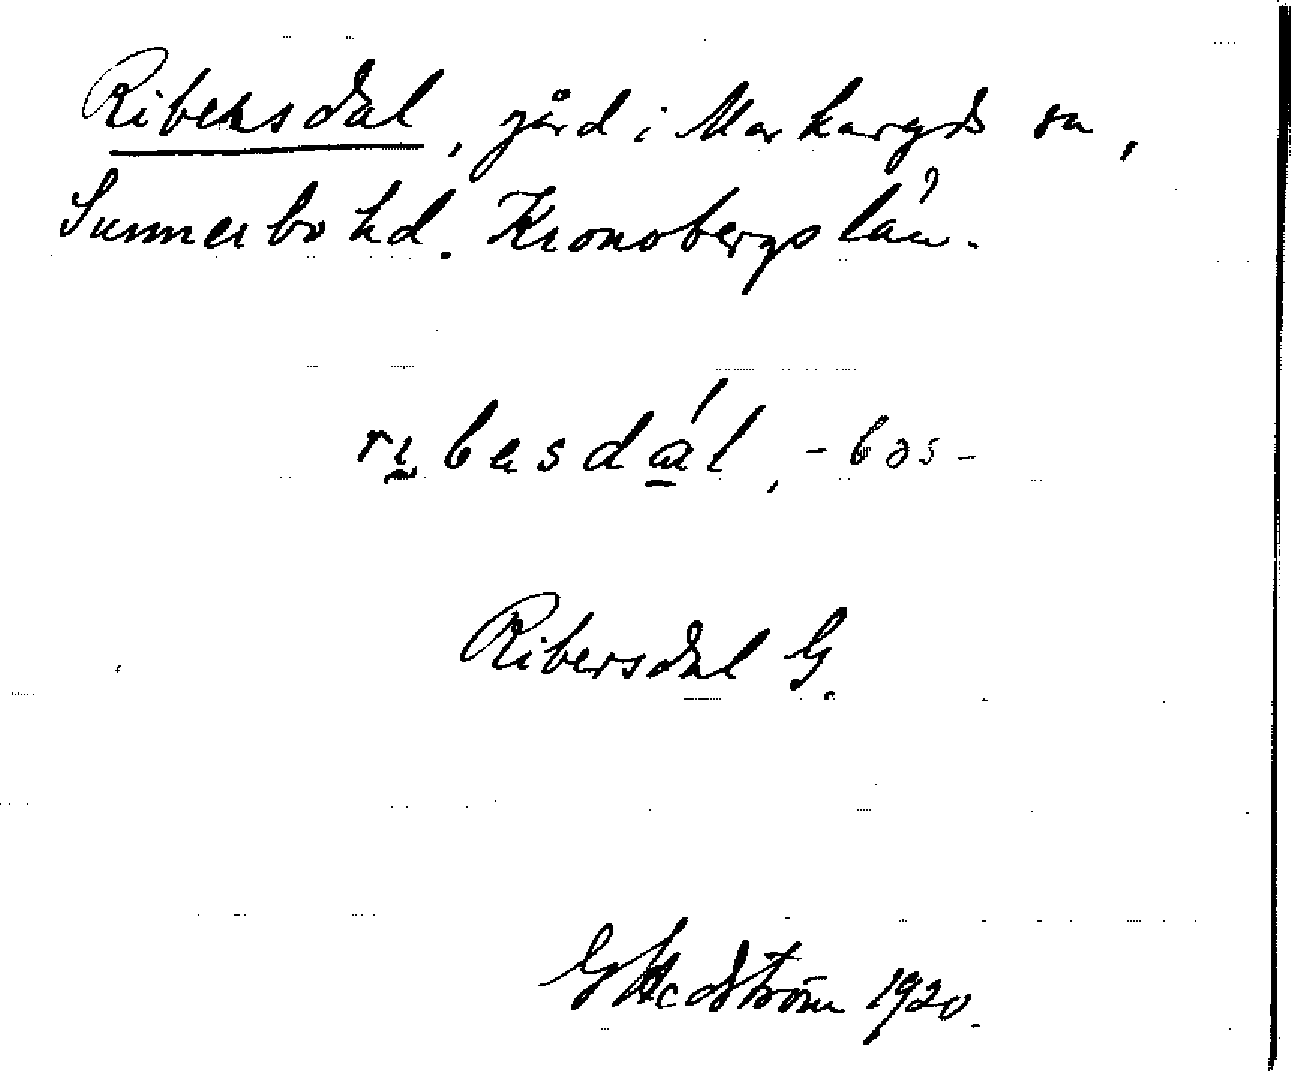 Ribersdal, gård i Markaryds sn,
Sunnerbo hd. Kronobergs län.
rıbesdál, -bəs-
Ribersdal G.
G Hedström 1920.